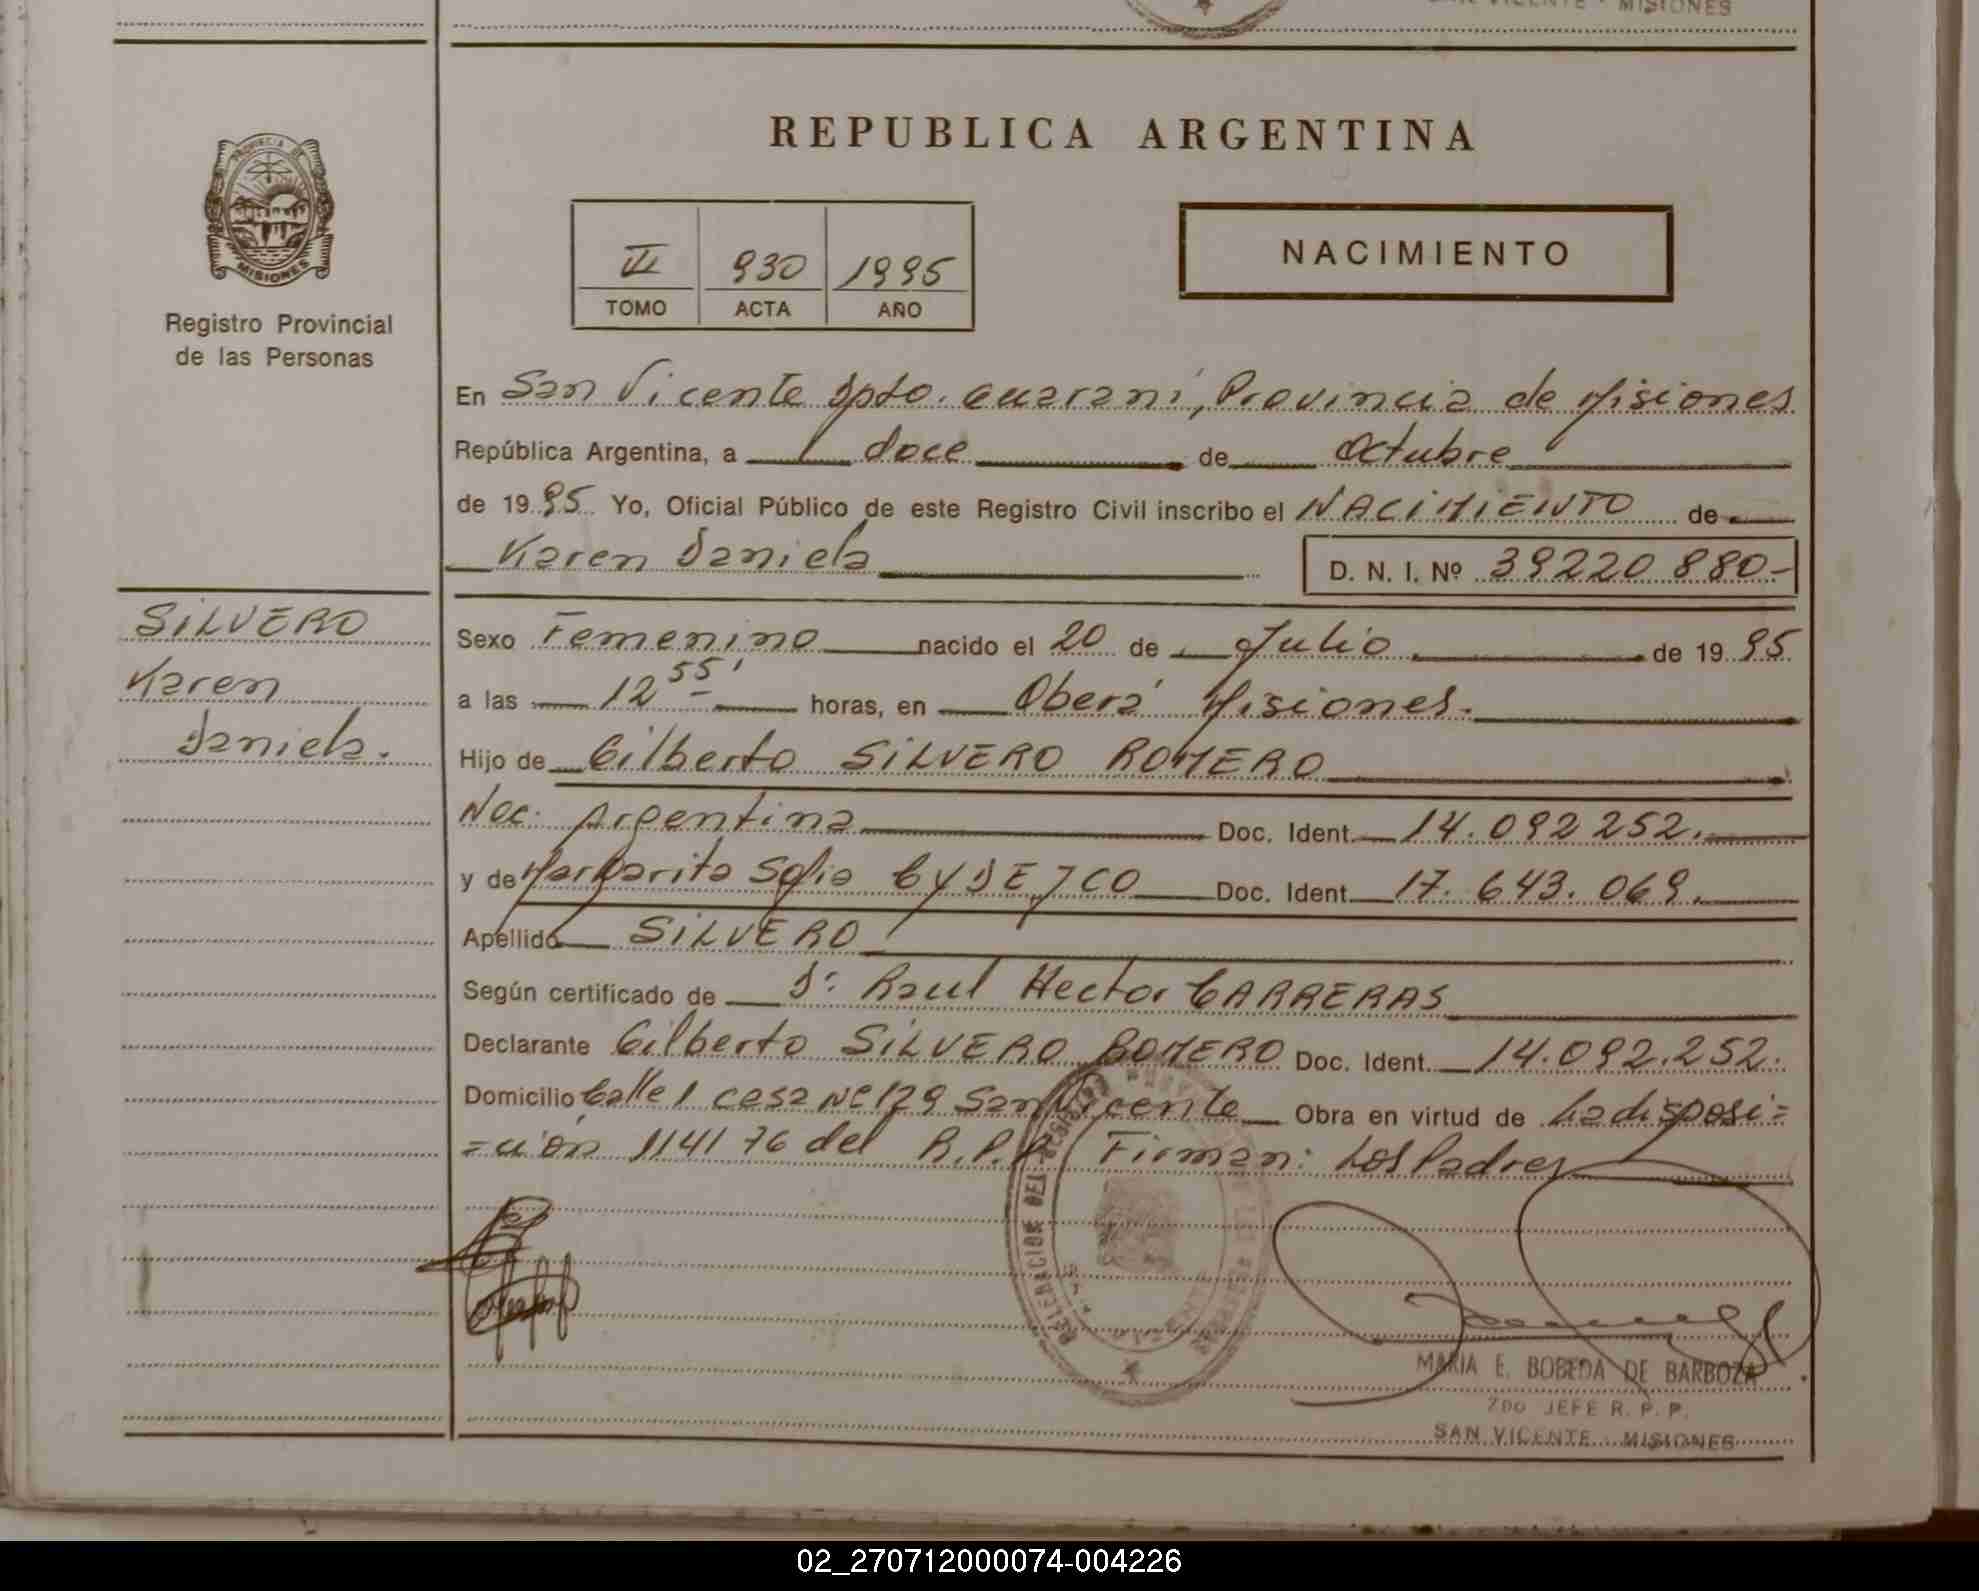 SAN VICENTE - MISIONES
REPUBLICA ARGENTINA
PROVINCIA DE
MISIONES
Registro Provincial
de las Personas
VI 930 1995
TOMO ACTA AÑO
NACIMIENTO
En San Vicente Dpto. Guaraní, Provincia de Misiones
República Argentina, a doce de Octubre
de 1995 Yo, Oficial Público de este Registro Civil inscribo el NACIMIENTO de
Karen Daniela D. N. I. Nº 39220880-
SILVERO
Karen
Daniela.
Sexo Femenino nacido el 20 de Julio de 1995
a las 12 55' horas, en Oberá Misiones.
Hijo de Gilberto SILVERO ROMERO
Nac. Argentina Doc. Ident. 14.092252.
y de Margarita Sofia Doc. Ident. 17.643.069.
Apellido SILVERO
Según certificado de Dr. Raul Hector CARRERAS
Declarante Gilberto SILVERO ROMERO Doc. Ident. 14.092.252.
Domicilio Calle 1 casa Nº 129 San Vicente Obra en virtud de La disposi=
=ción 1141 76 del R.P.P. Firman: Los Padres
MARIA E. BOBEDA DE BARBOZA
2DO JEFE R. P. P.
SAN VICENTE - MISIONES
02_270712000074-004226